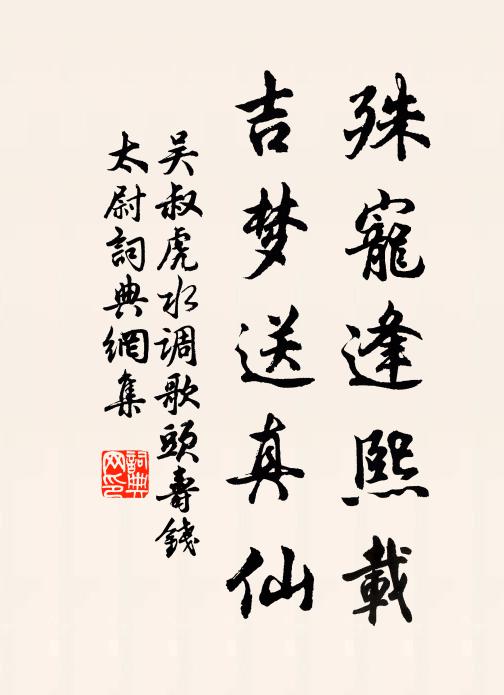 殊寵逢熙載
吉梦送真仙
吴叔虎水调歌頭壽錢
太尉詞典網集
詞典
网印